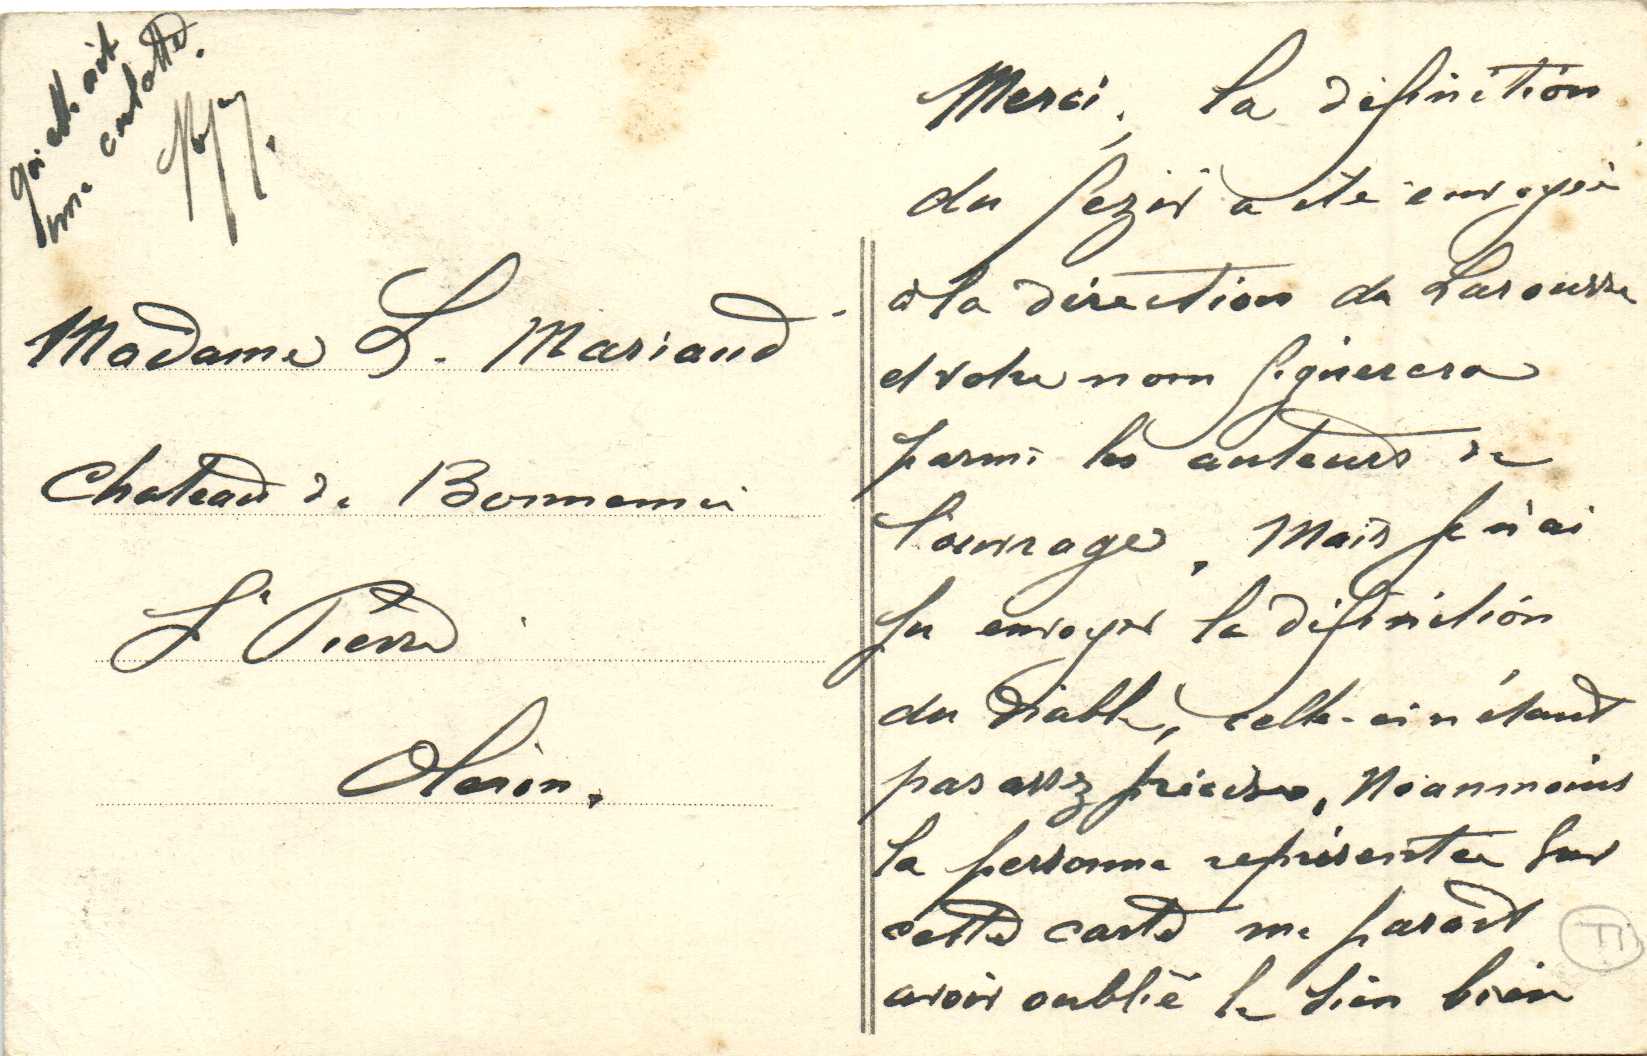 Merci, la définition
du fezir a été envoyée
à la direction du Larousse
et votre nom figurera
parmi les auteurs de
l'ouvrage. Mais je n'ai
pu envoyer la définition
du Diable, celle-ci n'étant
pas assez précise. Néanmoins
la personne représentée sur
cette carte me parait
avoir oublié le sien bien
qu'elle ait
une culotte.
Madame L. Mariaud
Chateau de Bonnemie
St Pierre
Oleron.
TI